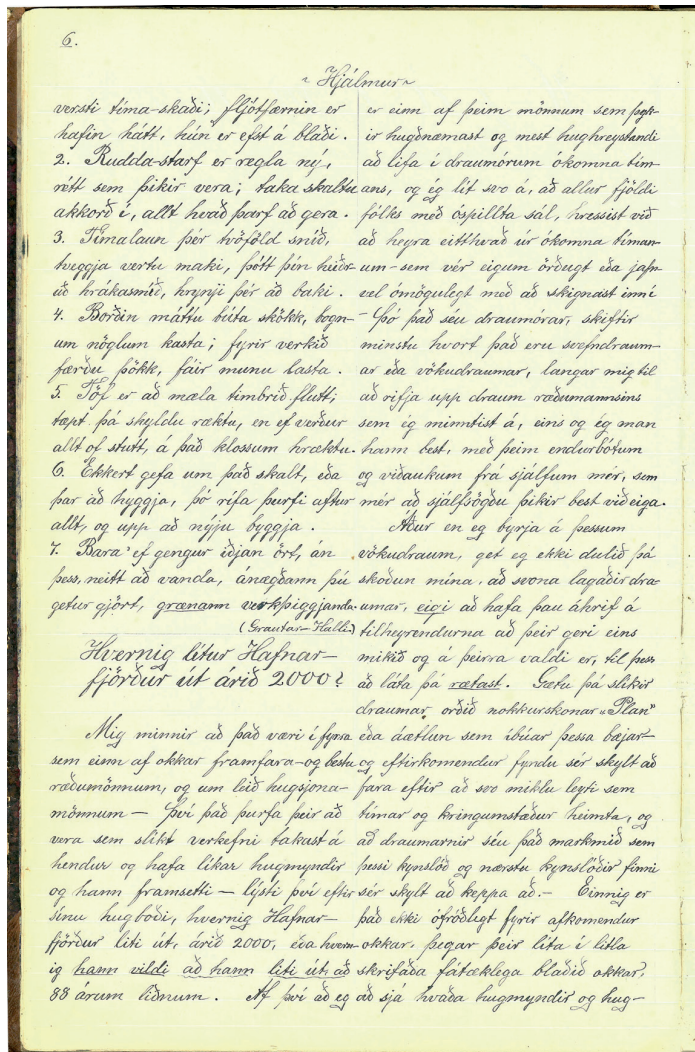 6.
~ Hjálmur ~
versti tíma-skaði; fljótfærnin er
hafin hátt, hún er efst á blaði.
2. Rudda-starf er regla ný,
rétt sem þikir vera; taka skaltu
akkorð í, allt hvað þarf að gera.
3. Tímalaun þér tvöföld sníð,
tveggja vertu maki, þótt þín
uð hrákasmíð, hrynji þér að baki.
4. Borðin máttu búta skökk, bogn-
um nöglum kasta; fyrir verkið
færðu þökk, fáir munu lasta.
5. Töf er að mæla timbrið flutt;
tæpt þá skyldu ræktu, en ef verður
allt of stutt, á það klossum hræktu.
6. Ekkert gefa um það skalt, eða
þar að hyggja, þó rífa þurfi aftur
allt, og upp að nýju byggja.
7. Bara ef gengur iðjan ört, án
þess, neitt að vanda, ánægðann þú
getur gjört, grænann verkþiggjanda.
(Grautar-Halli)
Hvernig lítur Hafnar-
fjörður út árið 2000?
Mig minnir að það væri í fyrra
sem einn af okkar framfara- og bestu
ræðumönnum, og um leið hugsjóna-
mönnum - því það þurfa þeir að
vera sem slíkt verkefni takast á
hendur og hafa líkar hugmyndir
og hann framsetti - lýsti því eftir
sínu hugboði, hvernig Hafnar-
fjörður liti út, árið 2000, eða hvern-
ig hann vildi að hann liti út, að
88 árum liðnum. Af því að eg
er einn af þeim mönnum sem þyk-
ir hugðnæmast og mest hughreystandi
að lifa í draumórum ókomna tím-
ans, og ég lít svo á, að allur fjöldi
fólks með óspillta sál, hressist við
að heyra eitthvað úr ókomna tíman-
um - sem vér eigum örðugt eða jafn-
vel ómögulegt með að skignast inní
- Þó það séu draumórar, skiftir
minstu hvort það eru svefndraum-
ar eða vökudraumar, langar mig til
að rifja upp draum ræðumannsins
sem ég minntist á, eins og ég man
hann best, með þeim endurbótum
og viðaukum frá sjálfum mér, sem
mér að sjálfsögðu þikir best við eiga.
Aður en eg byrja á þessum
vökudraum, get eg ekki dulið þá
skoðun mína, að svona lagaðir dra-
umar, eigi að hafa þau áhrif á
tilheyrendurna að þeir geri eins
mikið og á þeirra valdi er, til þess
að láta þá rætast. Gætu þá slíkir
draumar orðið nokkurskonar „Plan"
eða áætlun sem íbúar þessa bæjar-
og eftirkomendur fyndu sér skylt að
fara eftir að svo miklu leyti sem
tímar og kringumstæður heimta, og
að draumarnir séu það markmið sem
þessi kynslóð og næstu kynslóðir finni
sér skylt að keppa að. - Einnig er
það ekki ófróðlegt fyrir afkomendur
okkar, þegar þeir líta í litla
skrifaða fátæklega blaðið okkar,
að sjá hvaða hugmyndir og hug-